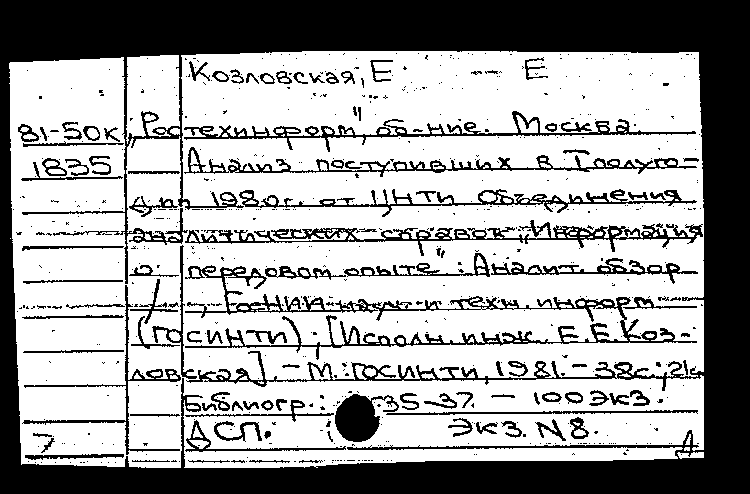 Козловская, Е — Е
81-50к „Ростехинформ", об-ние. Москва.
1835 Анализ поступивших в I полуго-
дии 1980г. от ЦНТИ Объединения
аналитических справок „Информация
о передовом опыте": Аналит. обзор
/ , ГосНИИ науч и техн. информ
(ГОСИНТИ); [Исполн. инж. Е.Е.Коз-
ловская]. – М.: ГОСИНТИ, 1981. – 38с; 21с
Библиогр.: 35-37. — 100экз.
7 ДСП. экз. N8. Д